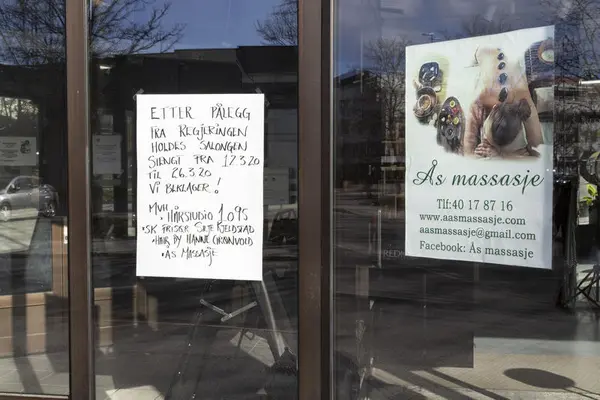 ETTER PÅLEGG
FRA REGJERINGEN
HOLDES SALONGEN
STENGT FRA 12.3.20
TIL 26.3.20
VI BEKLAGER!
MVH.
• HÅRSTUDIO 1.095
• SK FRISØR SILJE KJELDSTAD
• HAIR BY HANNE GRØNVOLD
• ÅS MASSASJE
Ås massasje
Tlf:40 17 87 16
www.aasmassasje.com
aasmassasje@gmail.com
Facebook: Ås massasje